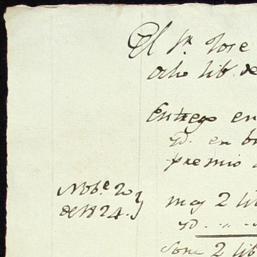 El Sr. Jose
ocho lib. de
Entrego en
yd. en
premio
Nobe. 20
de 1824.
mas 2 lib
yd.
Son 2 lib